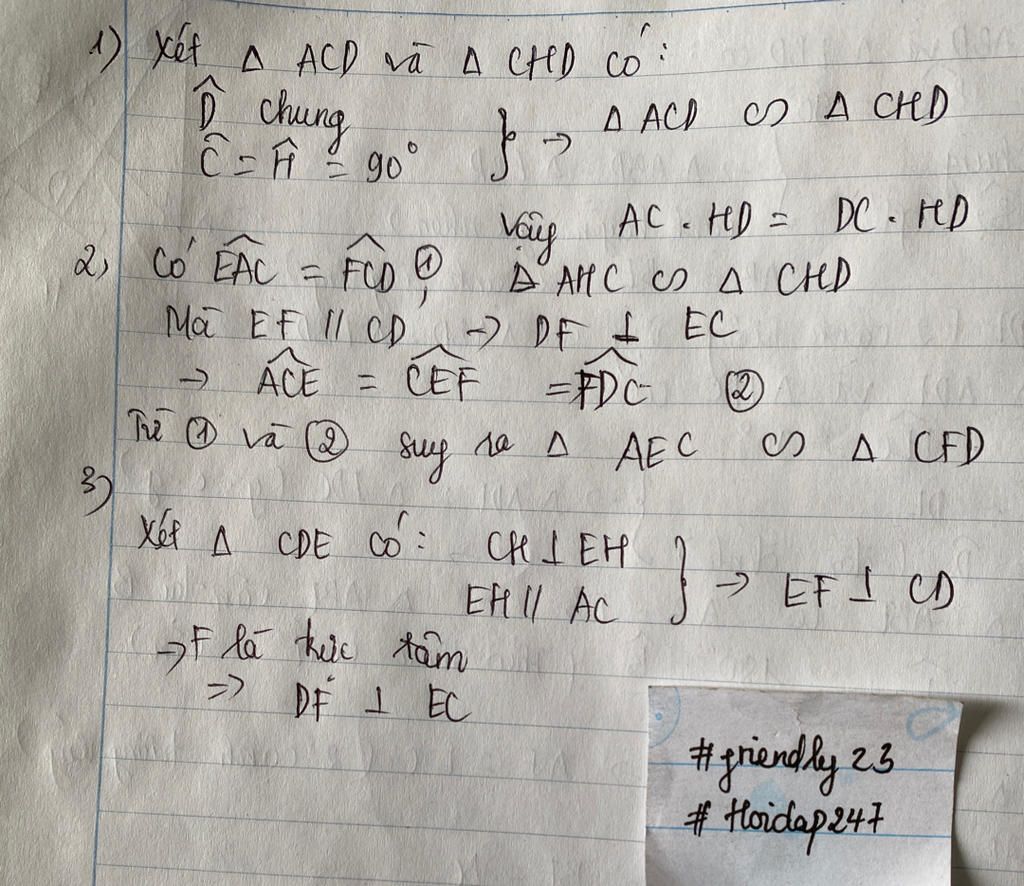 1) Xét Δ ACD và Δ CHD có:
D̂ chung
Ĉ = Ĥ = 90° } → Δ ACD ∽ Δ CHD
Vậy AC . HD = DC . HD
2, Có EAC^ = FCD^ ①, Δ AHC ∽ Δ CHD
Mà EF // CD → DF ⊥ EC
→ ACE^ = CEF^ = FDC^ ②
Từ ① và ② suy ra Δ AEC ∽ Δ CFD
3)
Xét Δ CDE có: CH ⊥ EH
EH // AC } → EF ⊥ CD
→ F là trực tâm
=> DF ⊥ EC
#friendly23
# Hoidap247